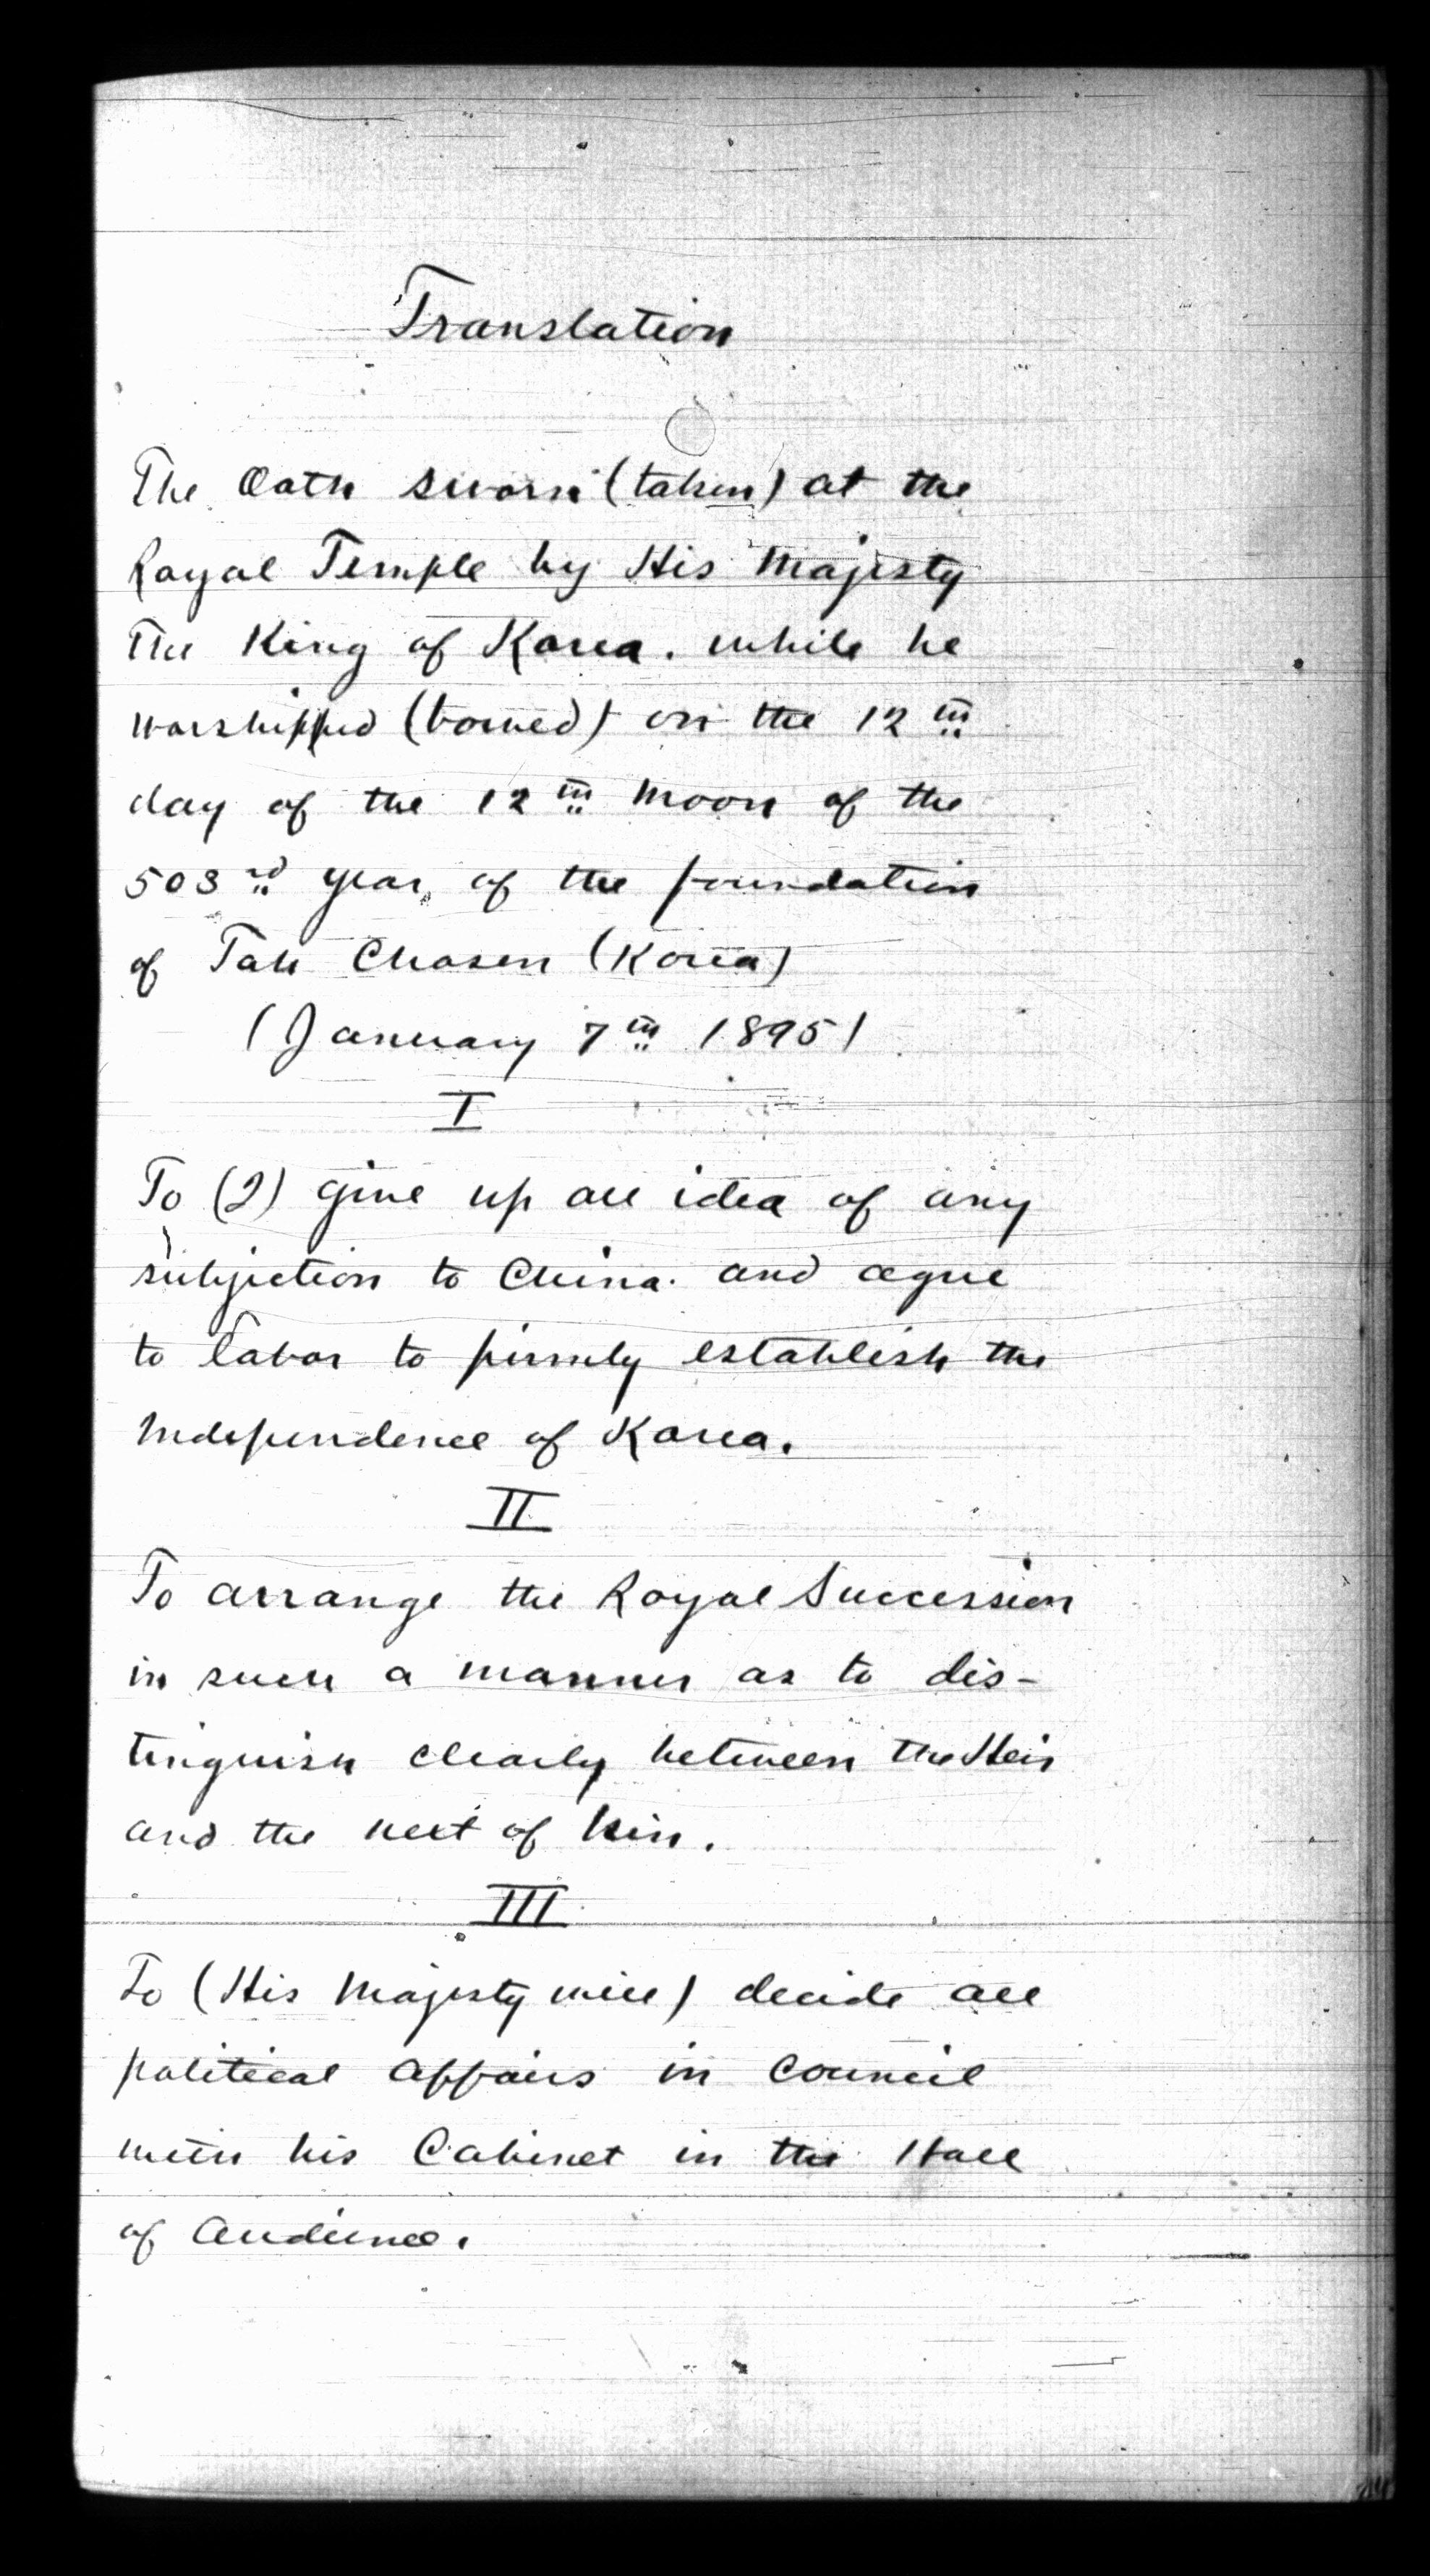 Translation
The Oath sworn (taken) at the
Royal Temple by His Majesty
The King of Korea. while he
worshipped (bowed) on the 12th
day of the 12th Moon of the
503rd year, of the foundation
of Tah Chosen (Korea)
(January 7th 1895)
I
To (I) give up all idea of any
subjection to China. and agree
to labor to firmly establish the
Independence of Korea.
II
To arrange the Royal Succession
in such a manner as to dis-
tinguish clearly between the Heir
and the next of kin.
III
To (His Majesty will) decide all
political affairs in Council
with his Cabinet in the Hall
of Audience.